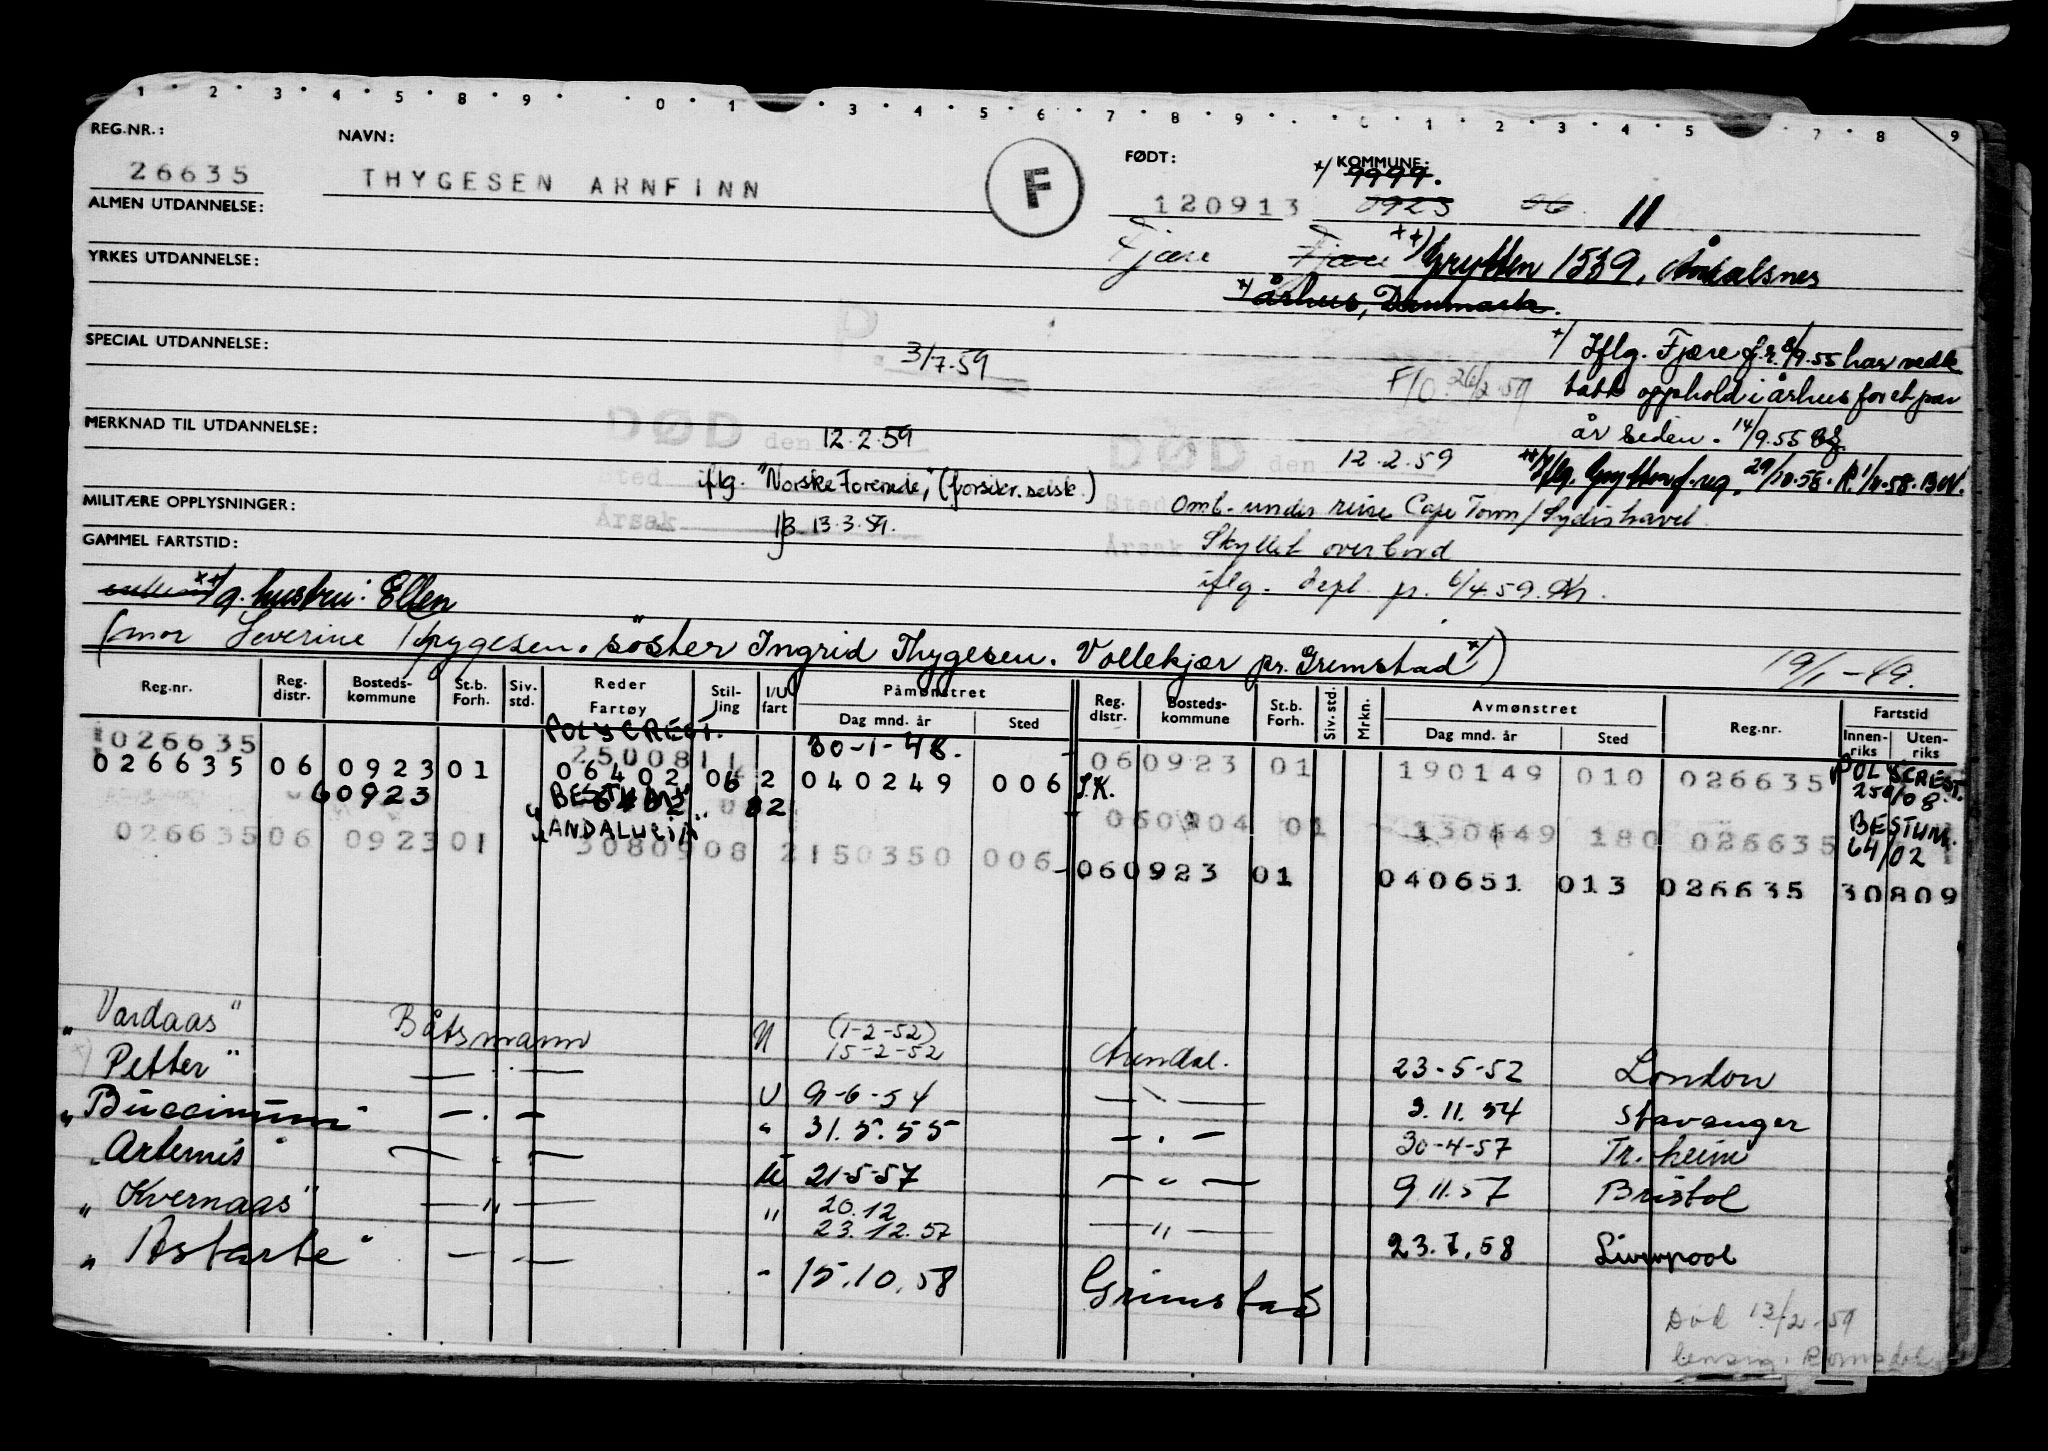 1 2 3 4 5 8 9 0 1 3 4 5 6 7 8 9 0 1 2 3 4 5 7 8 9
REG.NR.: NAVN: FØDT: KOMMUNE:
x/ 9999.
26635 THYGESEN ARNFINN F 120913 0923 06 11
ALMEN UTDANNELSE:
Fjære Fjære xx/ Grytten 1539, Åndalsnes
YRKES UTDANNELSE:
x/ Århus, Danmark.
SPECIAL UTDANNELSE:
P. 3/7.59
x/ Iflg. Fjære f.r. 8/9.55 har vedk.
F/O. 26/2.59 tatt opphold i Århus for et par
år siden. 14/9.55
MERKNAD TIL UTDANNELSE:
DØD den 12.2.59
DØD den 12.2.59
xx/ Iflg. Grytten f.reg. 29/10.58.
Sted iflg. "Norske Forenede," (forsikr.selsk.)
MILITÆRE OPPLYSNINGER:
Sted Omb. under reise Cape Town/Sydishavet
Årsak 13.3.59.
GAMMEL FARTSTID:
Årsak Skyllet overbord
iflg. depl. pr. 6/4.59.
xx/ g. hustru: Ellen
(mor Severine Thygesen. søster Ingrid Thygesen. Vollekjær pr. Grimstad x/)
19/1-49.
Reg.nr. Reg. distr. Bosteds-kommune St.b. Forh. Siv. std. Reder Fartøy Stil-ling I/U fart Påmønstret Dag mnd. år Sted Reg. distr. Bosteds-kommune St.b. Forh. Siv. std. Mrkn. Avmønstret Dag mnd. år Sted Reg.nr. Fartstid Innen-riks Uten-riks
POLYCREST.
026635 250081 30-1-48. 060923 01 190149 010 026635 POLYCREST. 250/08.
026635 06 0923 01 06402 06 2 040249 006 S.K.
60923 "BESTUM" 6402 02 060904 01 130649 180 026635 BESTUM. 64/02
"ANDALUCIA"
026635 06 0923 01 30809 08 2 150350 006 060923 01 040651 013 026635 30809
"Vardaas" Båtsmann U (1-2-52) 15-2-52 Arendal. 23-5-52 London
Petter" — " — U 9-6-54 — " — 3.11.54 Stavanger
"Buccinum" — " — " 31.5.55 — " — 30-4-57 Tr.heim
"Artemis" — " — U 21-5-57 — " — 9.11.57 Bristol
"Kvernaas" — " — " 20.12 23.12.57 — " — 23.7.58 Liverpool
"Astarte" — " — " 15.10.58 Grimstad
Død 13/2-59
Romsdal